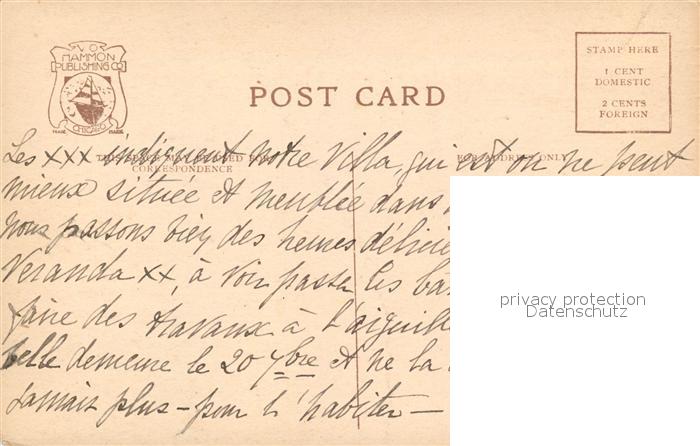 V O
HAMMON
PUBLISHING CO
CHICAGO
TRADE MARK
POST CARD
STAMP HERE
1 CENT
DOMESTIC
2 CENTS
FOREIGN
CORRESPONDENCE
FOR ADDRESS ONLY
Les XXX indiquent notre Villa, qui est on ne peut
mieux située et meublée dans
nous passons bien des heures délicie
Veranda XX, à voir passer les ba
faire des travaux à l'aiguill
belle demeure le 20 7bre et ne la
jamais plus - pour l'habiter -
privacy protection
Datenschutz